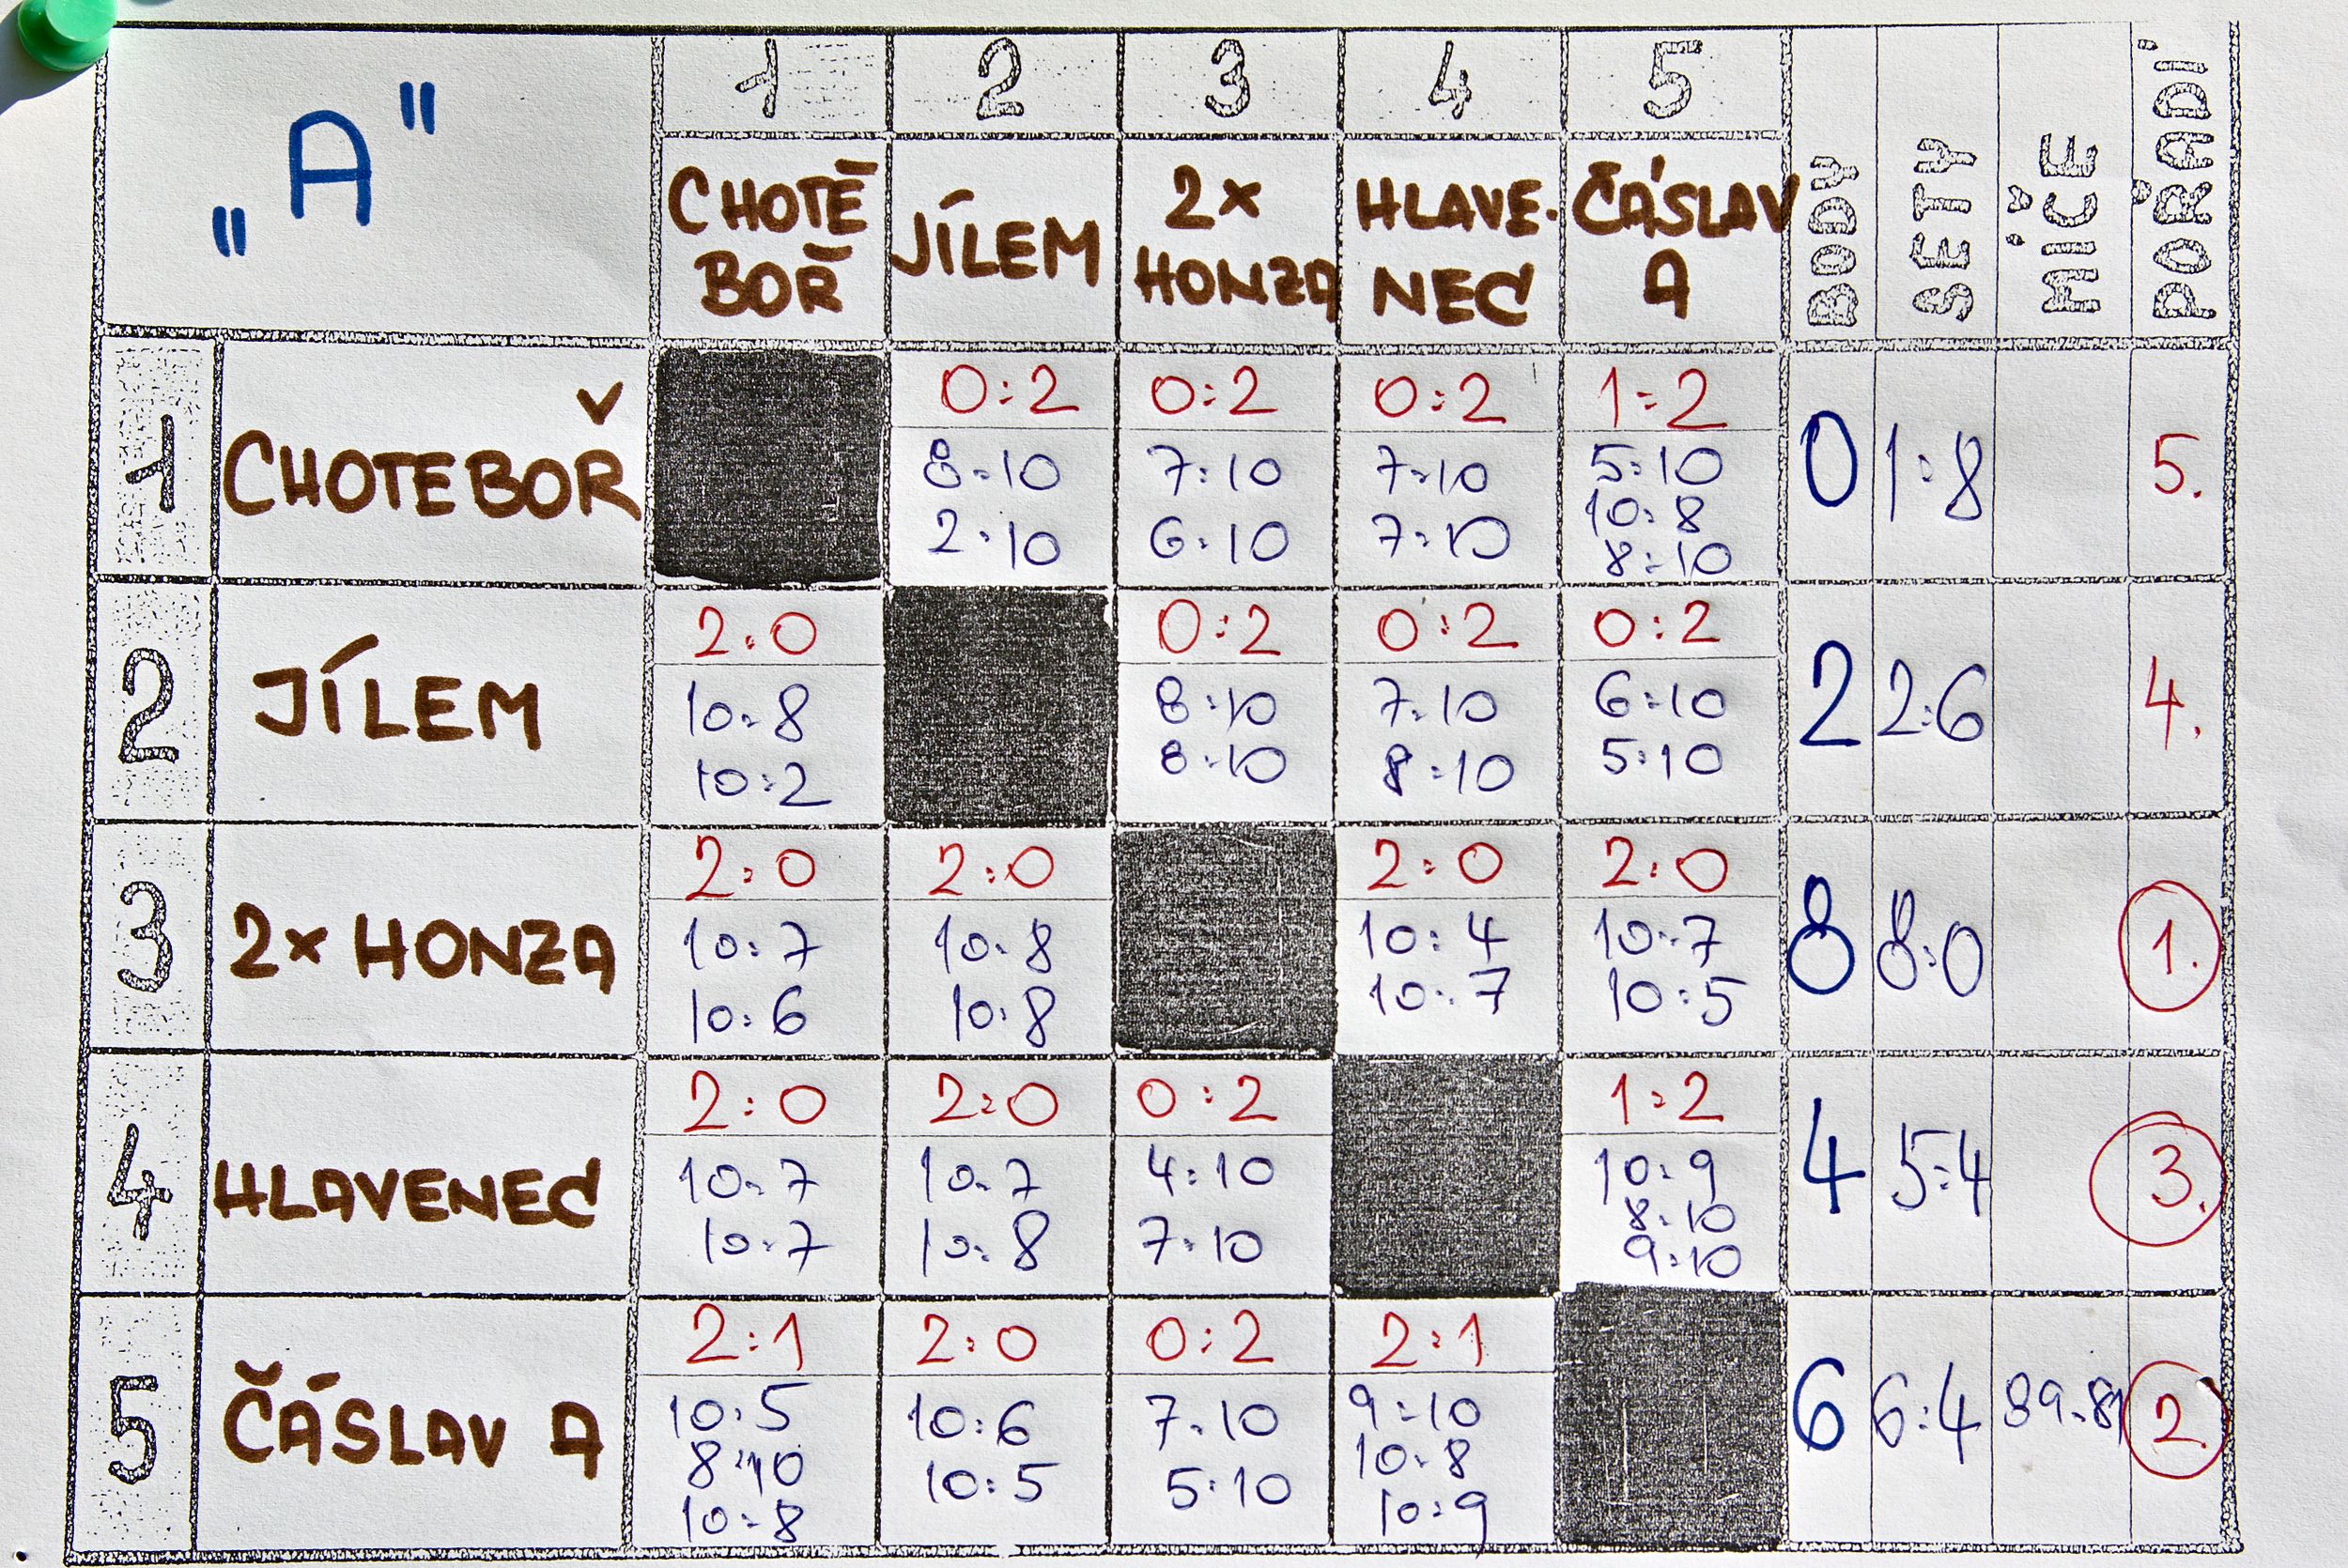 „A"
1 2 3 4 5
CHOTĚ
BOŘ
JÍLEM
2x
HONZA
HLAVE.
NEC
ČÁSLAV
A
BODY
SETY
MÍČE
POŘADÍ
1 CHOTEBOŘ 0:2 0:2 0:2 1:2 0 1:8 5.
8:10 7:10 7:10 5:10
10:8
2:10 6:10 7:10 8:10
2 JÍLEM 2:0 0:2 0:2 0:2 2 2:6 4.
10:8 8:10 7:10 6:10
10:2 8:10 8:10 5:10
3 2x HONZA 2:0 2:0 2:0 2:0 8 8:0 1.
10:7 10:8 10:4 10:7
10:6 10:8 10:7 10:5
4 HLAVENEC 2:0 2:0 0:2 1:2 4 5:4 3.
10:7 10:7 4:10 10:9
8:10
10:7 10:8 7:10 9:10
5 ČÁSLAV A 2:1 2:0 0:2 2:1 6 6:4 89:81 2.
10:5 10:6 7:10 9:10
8:10 10:8
10:8 10:5 5:10 10:9